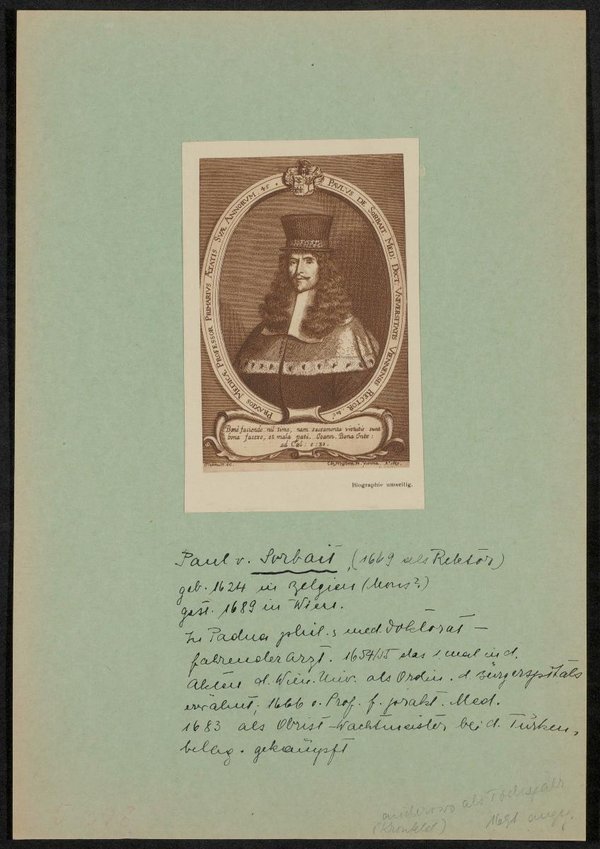 PAVLVS DE SORBAIT MED: DOCT: VNIVERSITATIS VIENNENSIS RECTOR
PRAXEOS MEDICÆ PROFESSOR PRIMARIVS ÆTATIS SVÆ ANNORVM 45
Bonè faciendo nil timo, nam sacramenta virtutis sunt
bona facere, et mala pati. Ioann. Bona
Biographie umseitig.
Paul v. Sorbait, (1669 als Rektor)
geb. 1624 in Belgien (Mons?)
gest. 1689 in Wien.
In Padua phil. u. med. Doktorat –
fahrender Arzt. 1654/55 das 1 mal in d.
Akten d. Wien. Univ. als Ordin. d. Bürgerspitals
erwähnt; 1666 o. Prof. f. prakt. Med.
1683 als Obrist-Wachtmeister bei d. Türken-
belag. gekämpft
anderswo als
(Kronfeld)